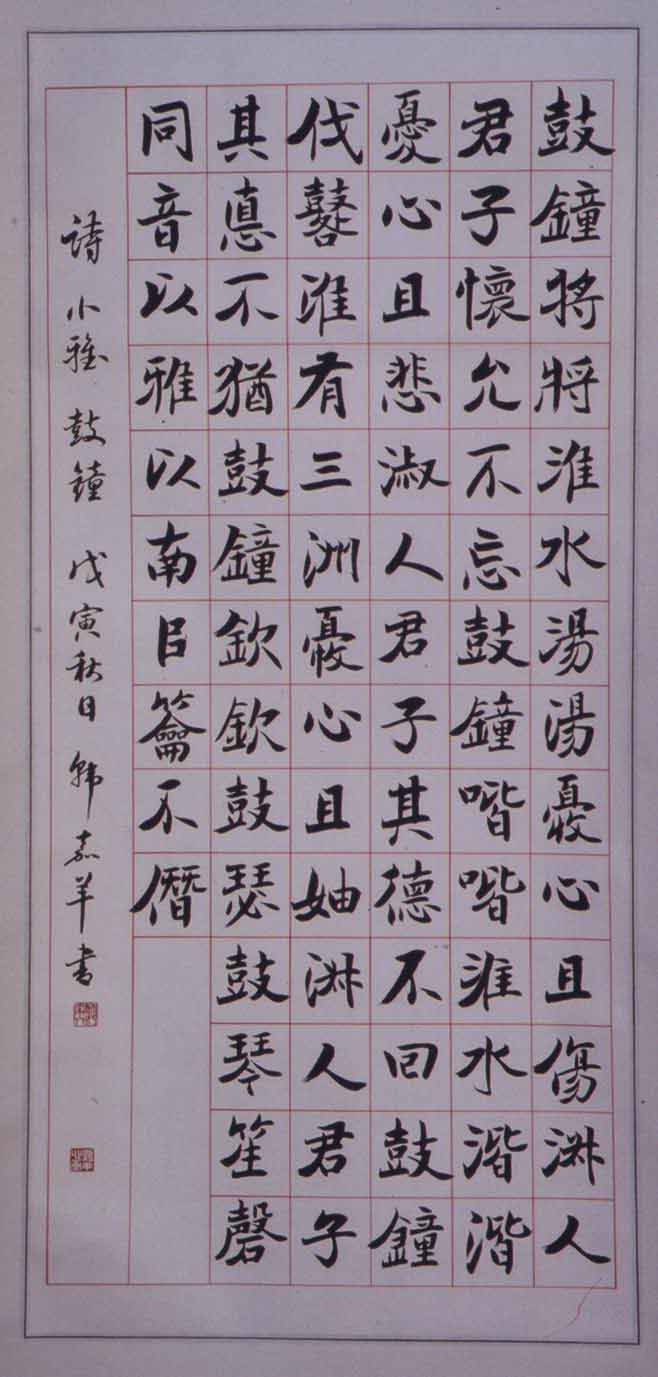 鼓鐘將將淮水湯湯憂心且傷淑人
君子懷允不忘鼓鐘喈喈淮水湝湝
憂心且悲淑人君子其德不回鼓鐘
伐鼛淮有三洲憂心且妯淑人君子
其悳不猶鼓鐘欽欽鼓瑟鼓琴笙磬
同音以雅以南㠯籥不僭
詩 小雅 鼓鐘 戊寅秋日 韩嘉羊書